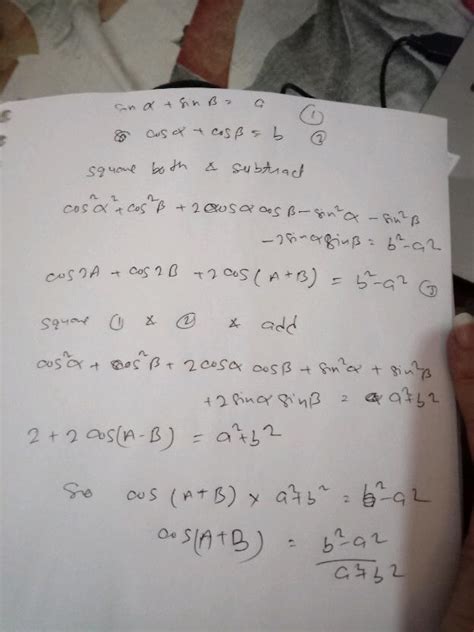 sin α + sin β = a ①
cos α + cos β = b ②
square both & subtract
cos²α² + cos²β + 2 cos α cos β - sin²α - sin²β
- 2 sin α sin β = b² - a²
cos 2A + cos 2B + 2 cos (A+B) = b² - a² ③
square ① & ② & add
cos²α + cos²β + 2 cos α cos β + sin²α + sin²β
+ 2 sin α sin β = a² + b²
2 + 2 cos(A-B) = a² + b²
So cos (A+B) × a² + b² = b² - a²
cos(A+B) = b² - a²
a² + b²